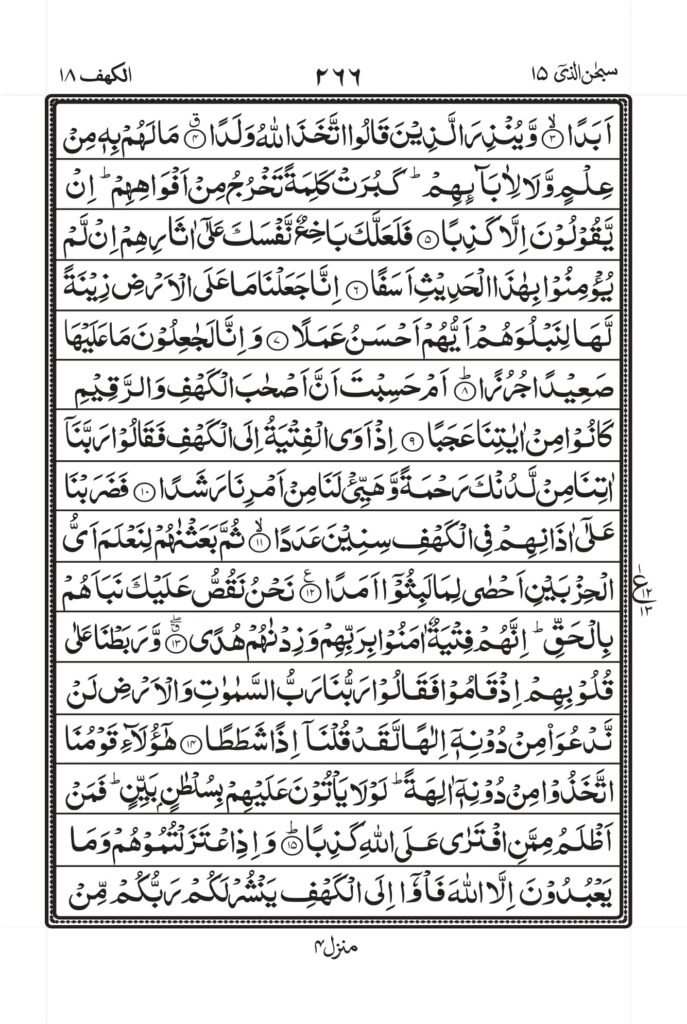 سبحٰن الذیٓ ۱۵ ۲۶۶ الکهف ۱۸
اَبَدًا ۙ﴿۳﴾ وَّیُنْذِرَ الَّذِیْنَ قَالُوا اتَّخَذَ اللّٰهُ وَلَدًا ۗ﴿۴﴾ مَا لَهُمْ بِهٖ مِنْ
عِلْمٍ وَّلَا لِاٰبَآىِٕهِمْ ؕ كَبُرَتْ كَلِمَةً تَخْرُجُ مِنْ اَفْوَاهِهِمْ ؕ اِنْ
یَّقُوْلُوْنَ اِلَّا كَذِبًا ﴿۵﴾ فَلَعَلَّكَ بَاخِعٌ نَّفْسَكَ عَلٰۤی اٰثَارِهِمْ اِنْ لَّمْ
یُؤْمِنُوْا بِهٰذَا الْحَدِیْثِ اَسَفًا ﴿۶﴾ اِنَّا جَعَلْنَا مَا عَلَی الْاَرْضِ زِیْنَةً
لَّهَا لِنَبْلُوَهُمْ اَیُّهُمْ اَحْسَنُ عَمَلًا ﴿۷﴾ وَاِنَّا لَجٰعِلُوْنَ مَا عَلَیْهَا
صَعِیْدًا جُرُزًا ؕ﴿۸﴾ اَمْ حَسِبْتَ اَنَّ اَصْحٰبَ الْكَهْفِ وَالرَّقِیْمِ
كَانُوْا مِنْ اٰیٰتِنَا عَجَبًا ﴿۹﴾ اِذْ اَوَی الْفِتْیَةُ اِلَی الْكَهْفِ فَقَالُوْا رَبَّنَاۤ
اٰتِنَا مِنْ لَّدُنْكَ رَحْمَةً وَّهَیِّئْ لَنَا مِنْ اَمْرِنَا رَشَدًا ﴿۱۰﴾ فَضَرَبْنَا
عَلٰۤی اٰذَانِهِمْ فِی الْكَهْفِ سِنِیْنَ عَدَدًا ۙ﴿۱۱﴾ ثُمَّ بَعَثْنٰهُمْ لِنَعْلَمَ اَیُّ
الْحِزْبَیْنِ اَحْصٰی لِمَا لَبِثُوْۤا اَمَدًا ﴿۱۲﴾ نَحْنُ نَقُصُّ عَلَیْكَ نَبَاَهُمْ
ع ۱۲ ۱۳
بِالْحَقِّ ؕ اِنَّهُمْ فِتْیَةٌ اٰمَنُوْا بِرَبِّهِمْ وَزِدْنٰهُمْ هُدًی ۗ﴿۱۳﴾ وَّرَبَطْنَا عَلٰی
قُلُوْبِهِمْ اِذْ قَامُوْا فَقَالُوْا رَبُّنَا رَبُّ السَّمٰوٰتِ وَالْاَرْضِ لَنْ
نَّدْعُوَا۠ مِنْ دُوْنِهٖۤ اِلٰهًا لَّقَدْ قُلْنَاۤ اِذًا شَطَطًا ﴿۱۴﴾ هٰۤؤُلَآءِ قَوْمُنَا
اتَّخَذُوْا مِنْ دُوْنِهٖۤ اٰلِهَةً ؕ لَوْلَا یَاْتُوْنَ عَلَیْهِمْ بِسُلْطٰنٍۭ بَیِّنٍ ؕ فَمَنْ
اَظْلَمُ مِمَّنِ افْتَرٰی عَلَی اللّٰهِ كَذِبًا ؕ﴿۱۵﴾ وَاِذِ اعْتَزَلْتُمُوْهُمْ وَمَا
یَعْبُدُوْنَ اِلَّا اللّٰهَ فَاْوٗۤا اِلَی الْكَهْفِ یَنْشُرْ لَكُمْ رَبُّكُمْ مِّنْ
منزل ۴